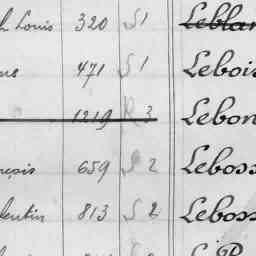 h Louis 320 S 1 Leblan
471 S 1 Lebois
1219 R 3 Lebon
659 S 2 Leboss
lentin 813 S 2 Leboss